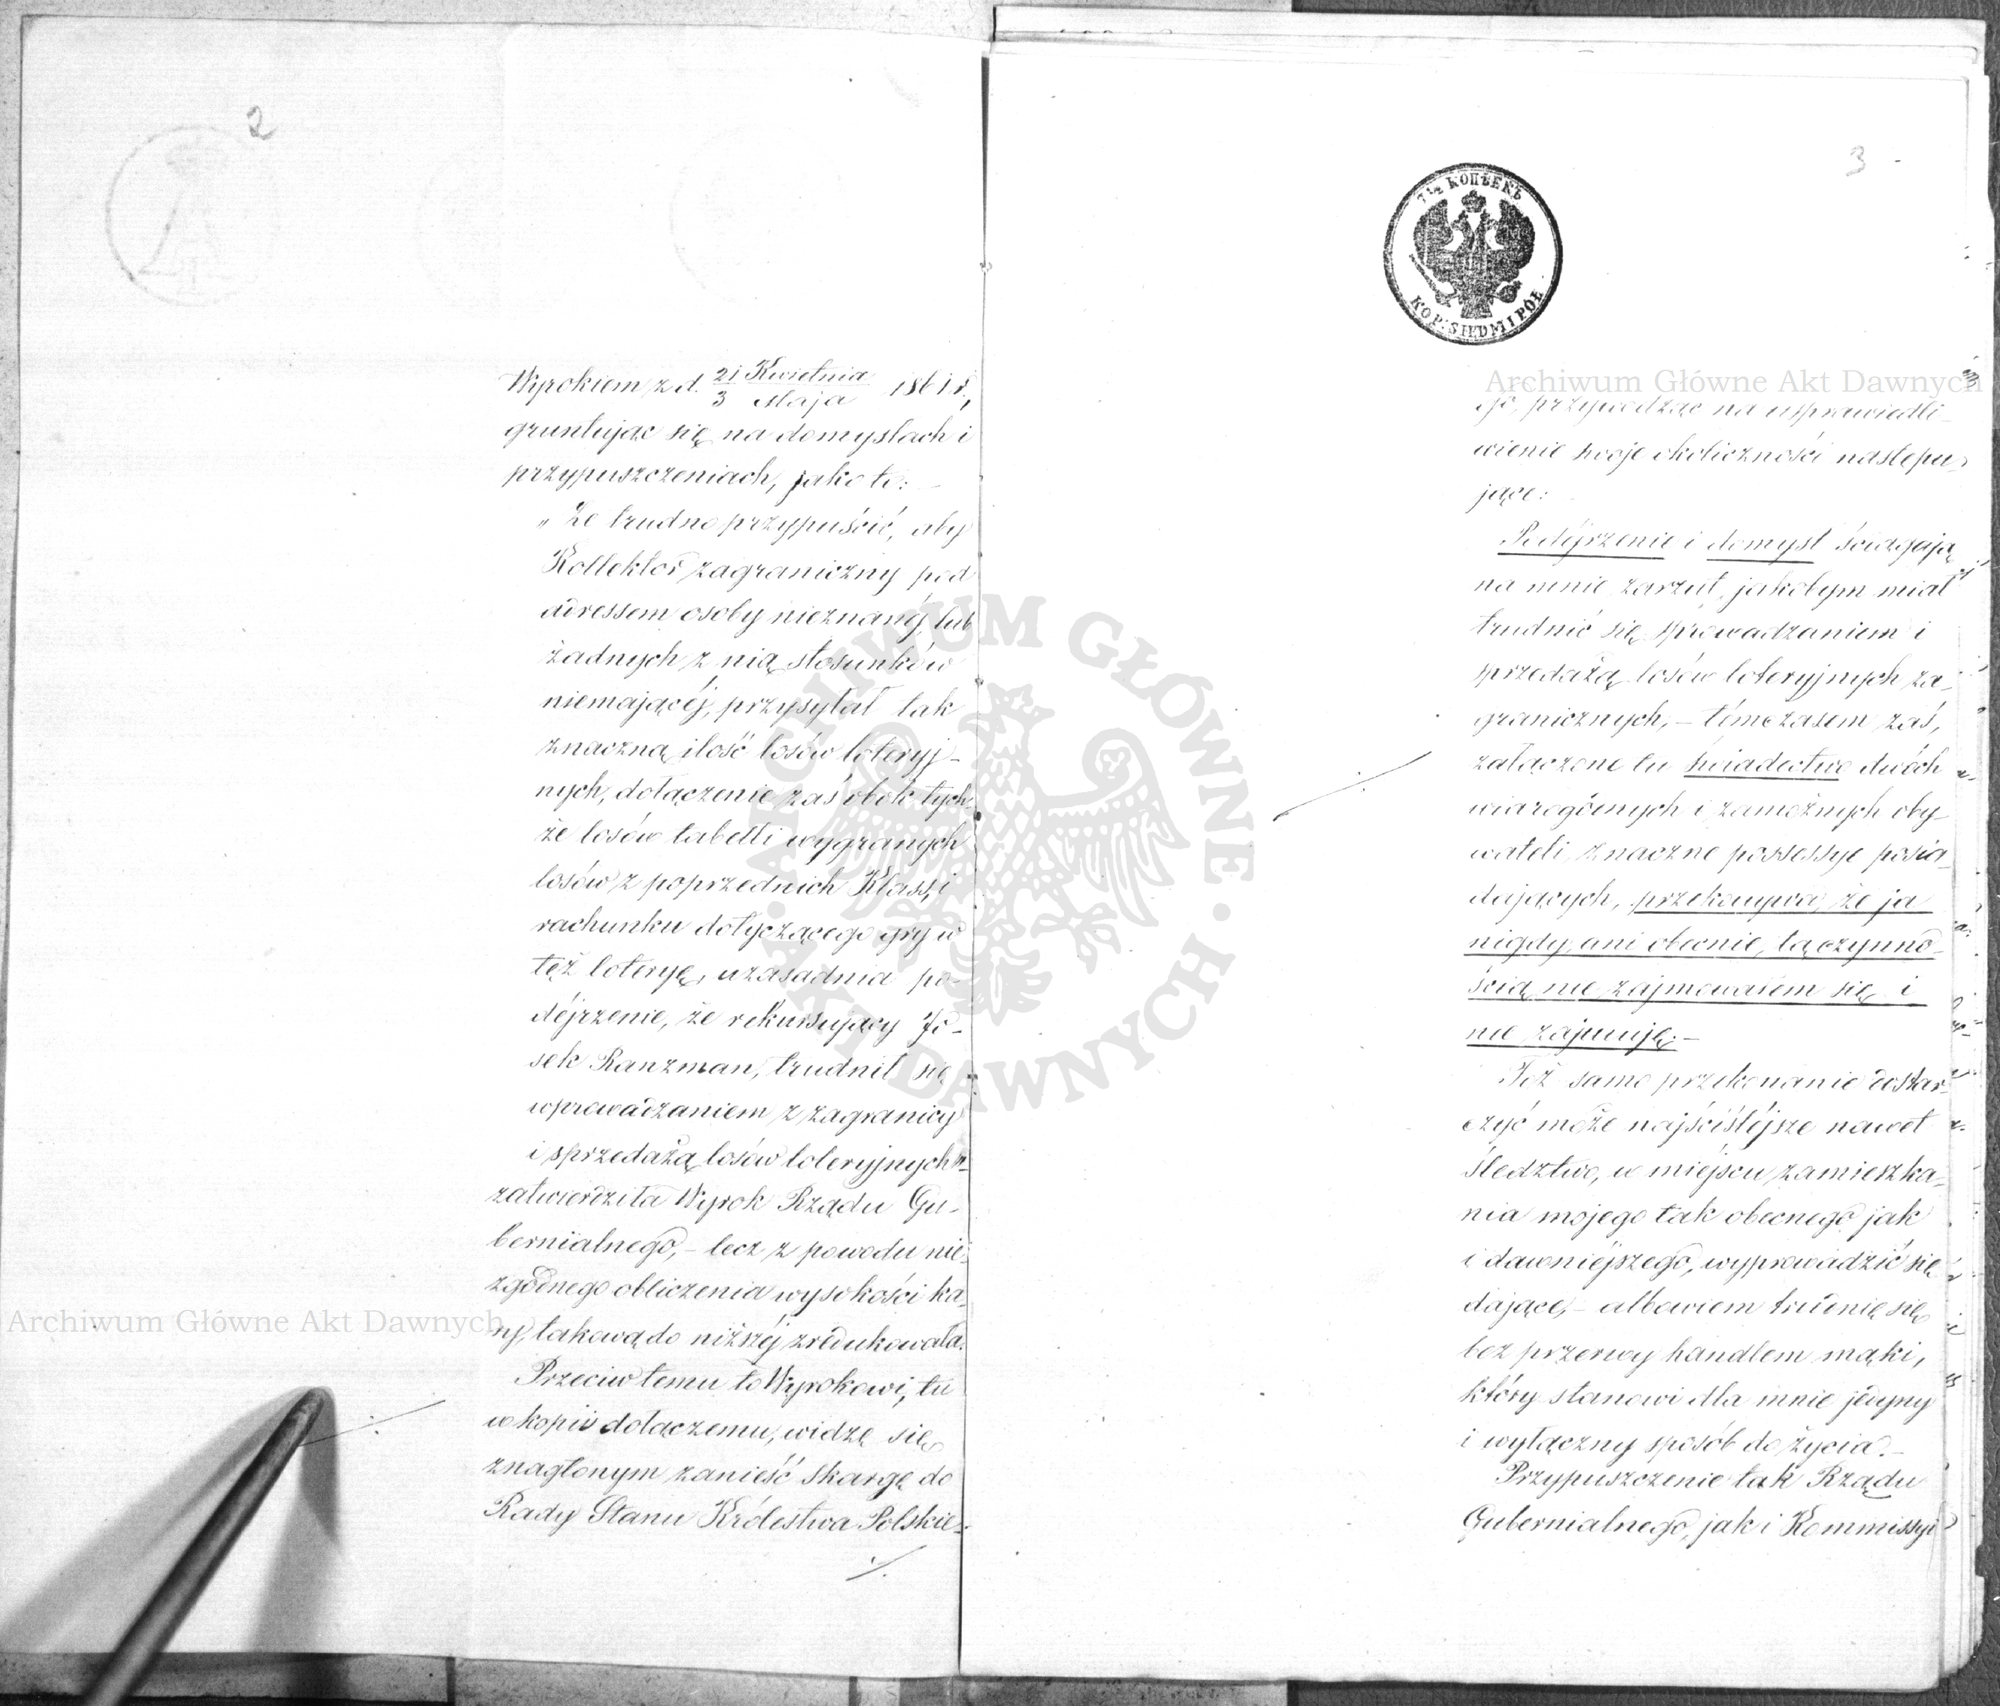 2
Wyrokiem z d. 21 Kwietnia / 3 Maja 1861 r.,
gruntując się na domysłach i
przypuszczeniach, jako to: —
„Że trudno przypuścić, aby
Kollektor zagraniczny pod
adressem osoby nieznanéj, lub
żadnych z nią stosunków
niemającéj, przysyłał tak
znaczną ilość losów loteryj-
nych, dołączenie zaś obok tych-
że losów tabelli wygranych
losów z poprzednich Klass, i
rachunku dotyczącego gry w
téż loteryę, uzasadnia po-
déjrzenie, że rekursujący Jo-
sek Ranzman, trudnił się
wprowadzaniem z zagranicy
i sprzedażą losów loteryjnych"-
zatwierdziła Wyrok Rządu Gu-
bernialnego, - lecz z powodu nie-
zgodnego obliczenia wysokości ka-
ry, takową do niższéj zredukowała.
Przeciw temu to Wyrokowi, tu
w kopii dołączemu, widzę się
znaglonym zanieść skargę do
Rady Stanu Królestwa Polskie-
3
7 1/2 КОПѢЕКЪ
KOP: SIEDM I PÓŁ
go, przywodząc na usprawiedli-
wienie swoje okoliczności nastepu-
jące:
Podéjrzenie i domysł ściągają
na mnie zarzut, jakobym miał
trudnić się sprowadzaniem i
sprzedażą losów loteryjnych za-
granicznych, - témczasem zaś,
załączone tu świadectwo dwóch
wiarogódnych i zamożnych oby-
wateli, znaczne possessye posia-
dających, przekonywa, że ja
nigdy, ani obecnie, tą czynno-
ścią nie zajmowałem się i
nie zajmuję. —
Toż samo przekonanie dostar-
czyć może najściśléjsze nawet
śledztwo, w miéjscu zamieszka-
nia mojego tak obecnego, jak
i dawniejszego, wyprowadzić się
dające, - albowiem trudnię się
bez przerwy handlem mąki,
który stanowi dla mnie jedyny
i wyłączny sposób do życia. -
Przypuszczenie tak Rządu
Gubernialnego, jak i Kommissyi
Archiwum Główne Akt Dawnych
Archiwum Główne Akt Dawnych
ARCHIWUM GŁÓWNE
AKT DAWNYCH